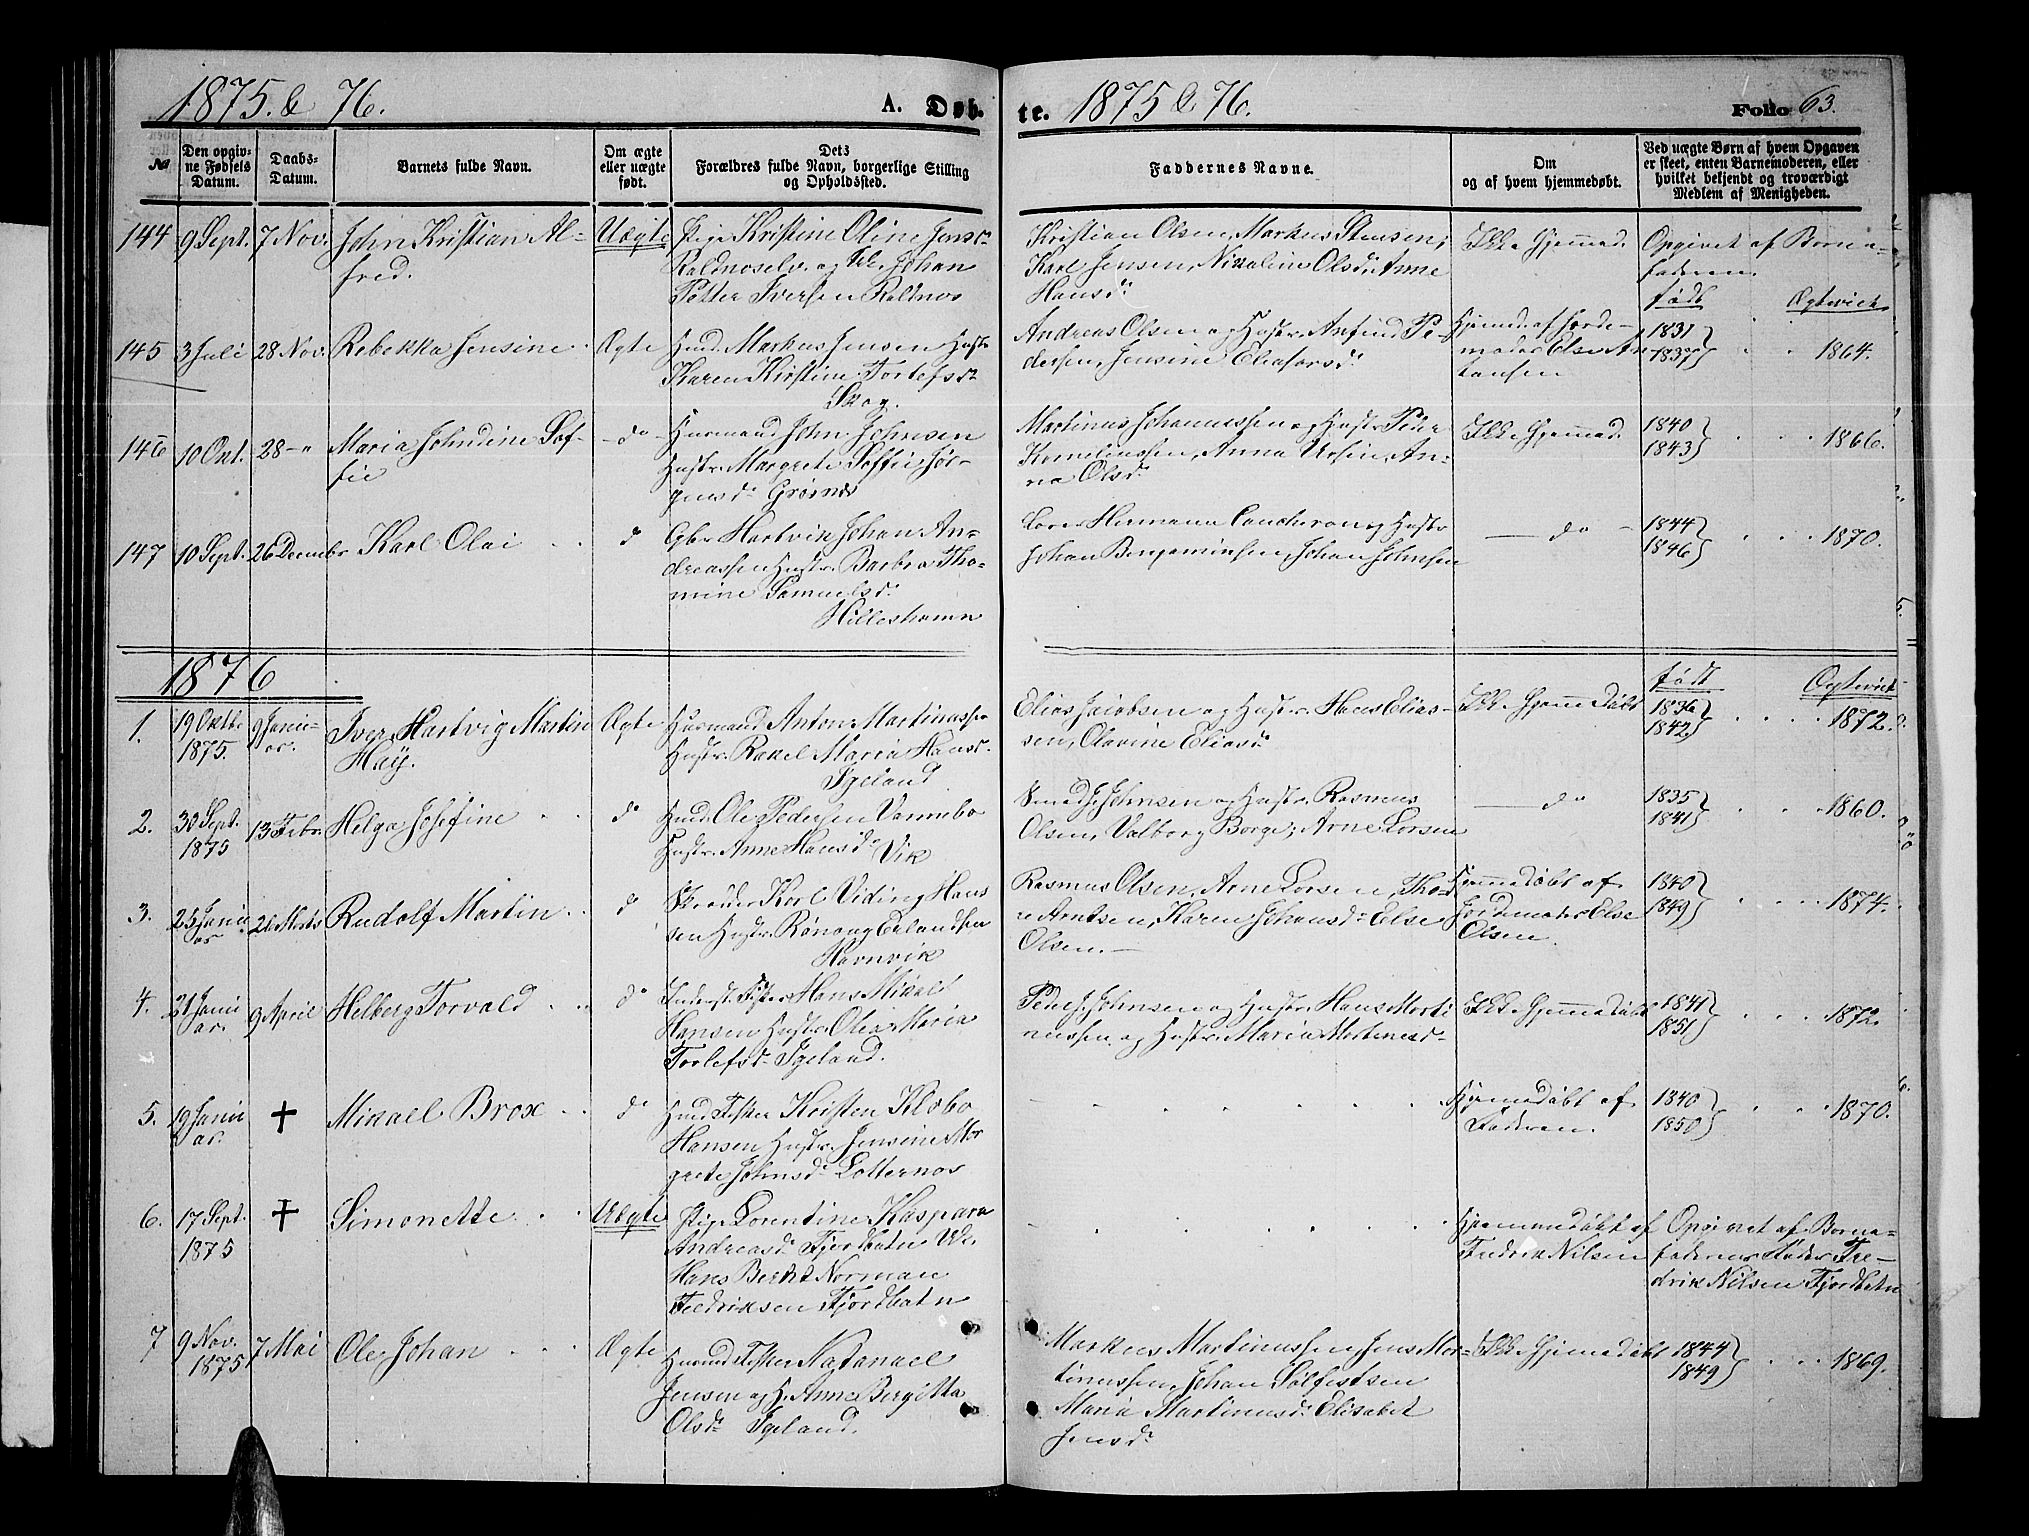 1875 & 76.
A.
Døb-
te.
1875 & 76.
Folio 63.
No
Den opgiv-
ne Fødsels
Datum.
Daabs-
Datum.
Barnets fulde Navn.
Om ægte
eller uægte
født.
Dets
Forældres fulde Navn, borgerlige Stilling
og Opholdssted.
Faddernes Navne.
Om
og af hvem hjemmedøbt.
Ved uægte Børn af hvem Opgaven
er skeet, enten Barnemoderen, eller
hvilket bekjendt og troværdigt
Medlem af Menigheden.
144
9 Sept.
7 Nov.
John Kristian Al-
fred.
Uægte
Pige Kristine Oline Jensd.
og Uk. Johan
Petter Iversen
Kristian Olsen, Markus Stensen,
Karl Jensen, Nikoline Olsd. Anne
Hansd.
Ikke Hjemmed.
Opgivet af Barne-
faderen.
født
Ægteviet
145
3 Juli
28 Nov.
Rebekka Jensine
Ægte
Husmd. Markus Jensen Hustr.
Karen Kirstine Torlefsd.
Skog.
Andreas Olsen og Hustr. Anfind Pe-
dersen, Jensine Eliasarsd.
Hjemmed. af Jorde-
moder Else An-
tonsen
1831
1837
1864.
146
10 Okt.
28 "
Maria Johndine Sof-
fie
do
Husmand John Johnsen
Hustr. Margrete Soffie Jør-
gensd. Grøsnes
Martinus Johannessen og Hustr. Peder
Kornelinssen, Anna Ursin, An-
na Olsd.
Ikke Hjemmed.
1840
1843
1866.
147
10 Sept.
26 Decembr
Karl Olai
d
Gbr. Hartvik Johan An-
dreassen Hustr. Barbra Tho-
mine Samuelsd.
Hilleshamn
Hermann og Hustr.
Johan Benjaminsen, Johan Johnsen
do
1844
1846
1870.
1876
født
Ægteviet
1.
19 Oktbr
1875.
9 Janu-
ar.
Iver Hartvig Martin
Høy.
Ægte
Husmand Anton Martinussen
Hustr. Rakel Maria Hansd.
Igeland
Elias Jacobsen og Hustr. Hans Elias-
sen, Olavine Eliasd.
Ikke Hjemmedøbt
1836
1842
1872.
2.
30 Sept.
1875
13 Febr.
Helga Josefine
do
Husmd. Ole Pedersen Vannebo
Hustr. Anne Hansd. Vik
J. Johnsen og Hustr. Rasmus
Olsen, Valborg Borge, Arne Larsen
do
1835
1841
1860.
3.
25 Janu-
ar
26 Marts
Rudolf Martin
do
Skræder Karl Viding Hans
sen Hustr. Rønaug Erlandsen
Havnvik
Rasmus Olsen, Arne Larsen, Tho-
re Arntsen, Karen Johansd. Else
Olsen.
Hjemmedøbt af
Jordemoder Else
Olsen.
1840
1849
1874.
4.
21 Janu
ar.
9 April
Helberg Torvald
do
Inderst. Fisker Hans Mikal
Hansen Hustr. Olea Maria
Torlefsd. Igeland.
Peder J. Johnsen og Hustr. Hans Marti
nussen og Hustr. Maria Martinusd.
Ikke Hjemmedøbt
1841
1851
1872.
5.
19 Janu
ar.
+
Mikael Brox
do
Husmd. Fisker Kristen Klobo
Hansen Hustr. Jensine Mar
grete Johnsd. Lotternes
Hjemmedøbt af
Faderen.
1840
1850
1870.
6.
17 Sept.
1875
+
Simonette
Uægte
Pige Lorentine Kaspara
Andreasd. Fjordbotn Uk.
Hans Berht Norman
Fredriksen Fjordbotn
Hjemmedøbt af
Fredrik Nilsen
Opgivet af Barne-
faderens Fader Fre-
drik Nilsen Fjordbotn
7
9 Nov.
1875
7 Mai
Ole Johan
Ægte
Husmd. Fisker Natanael
Jensen og H. Anne Bergitta
Olsd. Igeland.
Markus Martinussen, Jens Mar-
tinussen, Johan Sølfestsen
Maria Martinusd. Elisabet
Jensd.
Ikke Hjemmedøbt
1844
1849
1869.